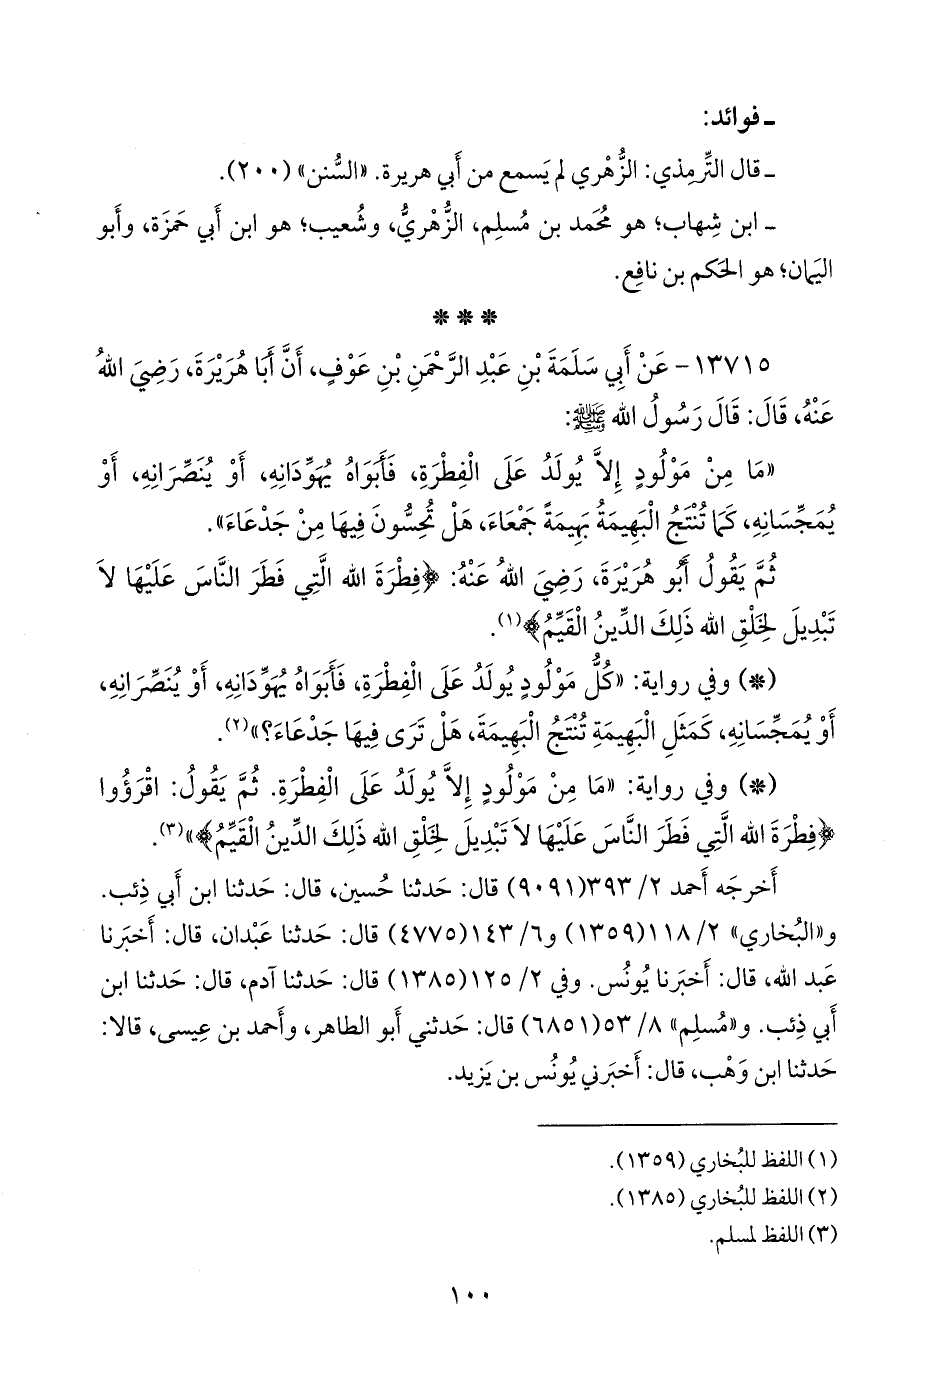 ـ فوائد:
ـ قال التِّرمِذي: الزُّهْري لم يَسمع من أَبي هريرة. «السُّنن» (٢٠٠).
ـ ابن شِهاب؛ هو مُحَمد بن مُسلِم، الزُّهْريُّ، وشُعيب؛ هو ابن أَبي حَمزَة، وأَبو
اليَمان؛ هو الحَكم بن نافِع.
* * *
١٣٧١٥ - عَنْ أَبِي سَلَمَةَ بْنِ عَبْدِ الرَّحْمَنِ بْنِ عَوْفٍ، أَنَّ أَبَا هُرَيْرَةَ، رَضِيَ اللهُ
عَنْهُ، قَالَ: قَالَ رَسُولُ الله ﷺ:
«مَا مِنْ مَوْلُودٍ إِلاَّ يُولَدُ عَلَى الْفِطْرَةِ، فَأَبَوَاهُ يُهَوِّدَانِهِ، أَوْ يُنَصِّرَانِهِ، أَوْ
يُمَجِّسَانِهِ، كَمَا تُنْتَجُ الْبَهِيمَةُ بَهِيمَةً جَمْعَاءَ، هَلْ تُحِسُّونَ فِيهَا مِنْ جَدْعَاءَ».
ثُمَّ يَقُولُ أَبُو هُرَيْرَةَ، رَضِيَ اللهُ عَنْهُ: ﴿فِطْرَةَ الله الَّتِي فَطَرَ النَّاسَ عَلَيْهَا لاَ
تَبْدِيلَ لِخَلْقِ الله ذَلِكَ الدِّينُ الْقَيِّمُ﴾(١).
(*) وفي رواية: «كُلُّ مَوْلُودٍ يُولَدُ عَلَى الْفِطْرَةِ، فَأَبَوَاهُ يُهَوِّدَانِهِ، أَوْ يُنَصِّرَانِهِ،
أَوْ يُمَجِّسَانِهِ، كَمَثَلِ الْبَهِيمَةِ تُنْتَجُ الْبَهِيمَةَ، هَلْ تَرَى فِيهَا جَدْعَاءَ؟»(٢).
(*) وفي رواية: «مَا مِنْ مَوْلُودٍ إِلاَّ يُولَدُ عَلَى الْفِطْرَةِ. ثُمَّ يَقُولُ: اقْرَؤُوا
﴿فِطْرَةَ الله الَّتِي فَطَرَ النَّاسَ عَلَيْهَا لاَ تَبْدِيلَ لِخَلْقِ الله ذَلِكَ الدِّينُ الْقَيِّمُ﴾»(٣).
أَخرجَه أَحمد ٢/ ٣٩٣(٩٠٩١) قال: حَدثنا حُسين، قال: حَدثنا ابن أَبي ذِئب.
و«البُخاري» ٢/ ١١٨(١٣٥٩) و٦/ ١٤٣(٤٧٧٥) قال: حَدثنا عَبْدان، قال: أَخبَرنا
عَبد الله، قال: أَخبَرنا يُونُس. وفي ٢/ ١٢٥(١٣٨٥) قال: حَدثنا آدم، قال: حَدثنا ابن
أَبي ذِئب. و«مُسلم» ٨/ ٥٣(٦٨٥١) قال: حَدثني أَبو الطاهر، وأَحمد بن عِيسى، قالا:
حَدثنا ابن وَهْب، قال: أَخبَرني يُونُس بن يَزيد.
(١) اللفظ للبُخاري (١٣٥٩).
(٢) اللفظ للبُخاري (١٣٨٥).
(٣) اللفظ لمسلم.
١٠٠